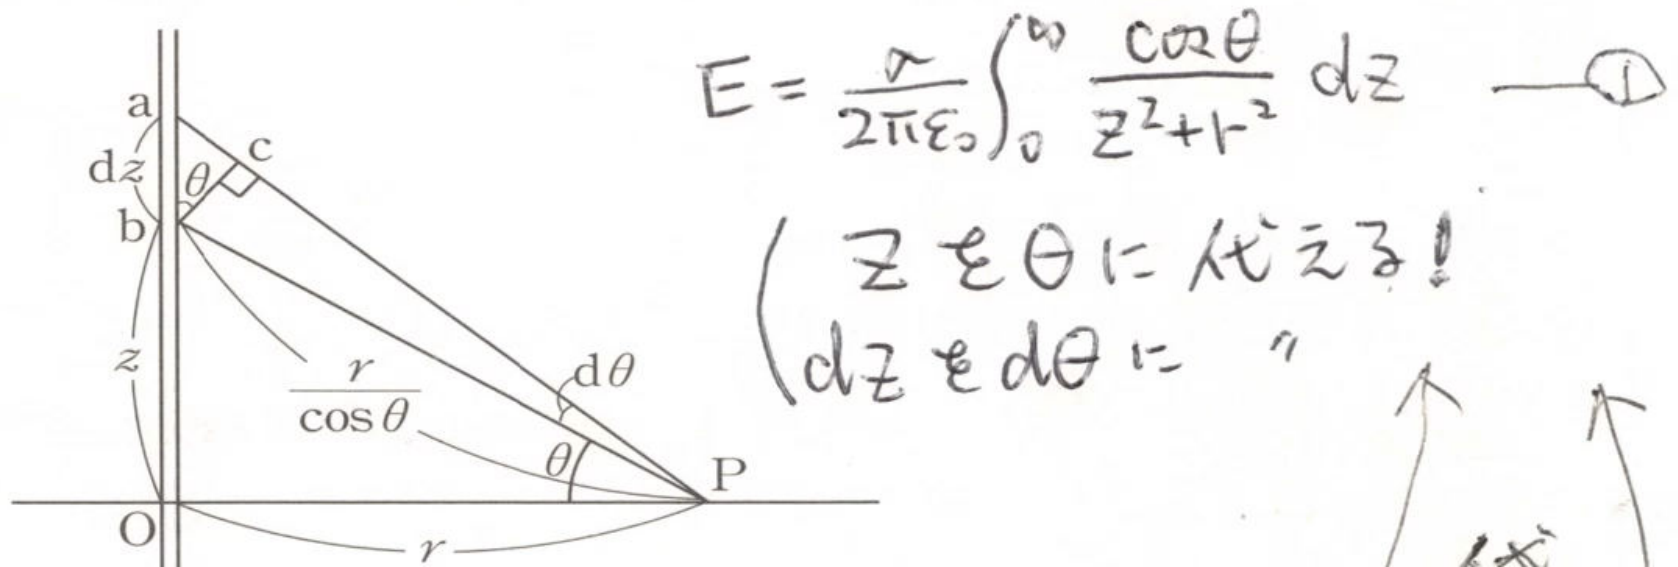 a
c
dz
θ
b
z
r
cos θ
dθ
θ
P
O
r
E = σ/2πε₀ ∫₀^∞ cosθ/(z²+r²) dz —①
zをθに代える!
dzをdθに 〃
代